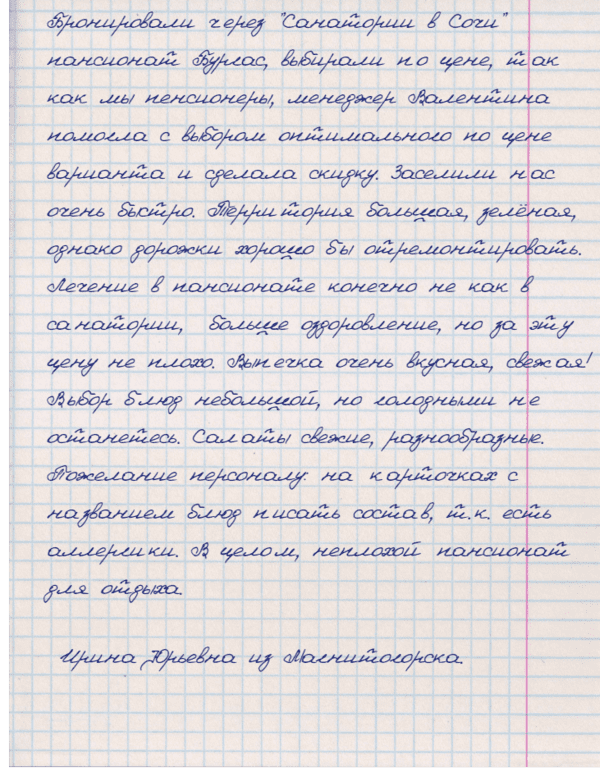 Бронировали через "Санатории в Сочи"
пансионат Бургас, выбирали по цене, так
как мы пенсионеры, менеджер Валентина
помогла с выбором оптимального по цене
варианта и сделала скидку. Заселили нас
очень быстро. Территория большая, зелёная,
однако дорожки хорошо бы отремонтировать.
Лечение в пансионате конечно не как в
санатории, больше оздоровление, но за эту
цену не плохо. Выпечка очень вкусная, свежая!
Выбор блюд небольшой, но голодными не
останетесь. Салаты свежие, разнообразные.
Пожелание персоналу: на карточках с
названием блюд писать состав, т.к. есть
аллергики. В целом, неплохой пансионат
для отдыха.
Ирина Юрьевна из Магнитогорска.